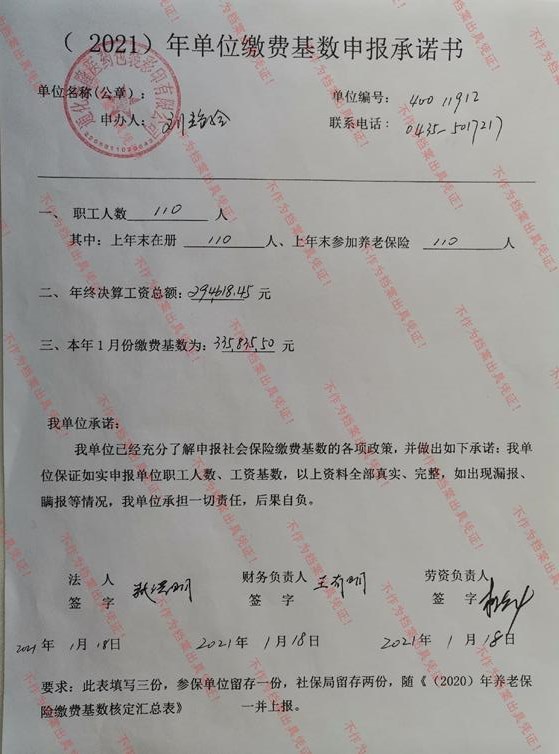 （ 2021）年单位缴费基数申报承诺书
单位名称(公章)：
单位编号： 40011912
申办人：
联系电话： 0435-5017217
一、 职工人数 110 人
其中：上年末在册 110 人、上年末参加养老保险 110 人
二、 年终决算工资总额：294618.45 元
三、本年 1 月份缴费基数为：335,835,50 元
我单位承诺：
我单位已经充分了解申报社会保险缴费基数的各项政策，并做出如下承诺：我单
位保证如实申报单位职工人数、工资基数，以上资料全部真实、完整，如出现漏报、
瞒报等情况，我单位承担一切责任，后果自负。
法 人 财务负责人 劳资负责人
签 字 签 字 签 字
2021 年 1 月 18 日 2021 年 1 月 18 日 2021 年 1 月 18 日
要求：此表填写三份，参保单位留存一份，社保局留存两份，随《（2020）年养老保
险缴费基数核定汇总表》 一并上报。
不作为档案出具凭证！